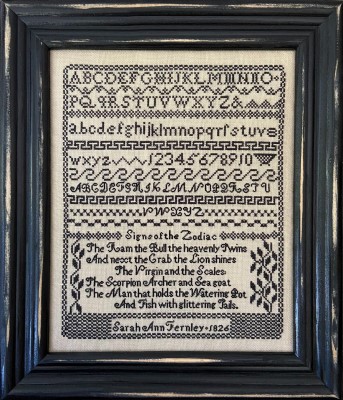 ABCDEFGHIJKLMNO
PQRSTUVWXYZ&
abcdefghijklmnopqrstuv
wxyz 12345678910
ABCDEFGHIJKLMNOPQRSTU
VWXYZ
Signs of the Zodiac
The Ram the Bull the heavenly Twins
And next the Crab the Lion shines
The Virgin and the Scales
The Scorpion Archer and Sea goat
The Man that holds the Watering Pot
And Fish with glittering Tails.
Sarah Ann Fernley • 1826